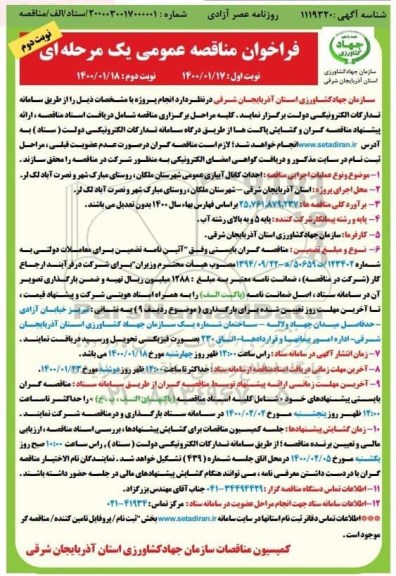 شناسه آگهی: ۱۱۱۹۳۲۰
روزنامه عصر آزادی
شماره : ۲۰۰۰۰۳۰۰۱۷۰۰۰۰۰۱/ستاد/الف/مناقصه
نوبت دوم
فراخوان مناقصه عمومی یک مرحله‌ای
نوبت اول: ۱۴۰۰/۰۱/۱۷ نوبت دوم: ۱۴۰۰/۰۱/۱۸
جهاد کشاورزی
سازمان جهادکشاورزی
استان آذربایجان شرقی
سازمان جهادکشاورزی استان آذربایجان شرقی درنظردارد انجام پروژه با مشخصات ذیل را از طریق سامانه
تدارکات الکترونیکی دولت برگزار نماید. کلیه مراحل برگزاری مناقصه شامل دریافت اسناد مناقصه، ارائه
پیشنهاد مناقصه گران و گشایش پاکت ها از طریق درگاه سامانه تدارکات الکترونیکی دولت (ستاد) به
آدرس www.setadiran.ir انجام خواهد شد؛ لازم است مناقصه گران درصورت عدم عضویت قبلی، مراحل
ثبت نام در سایت مذکور و دریافت گواهی امضای الکترونیکی به منظور شرکت در مناقصه را محقق سازند.
۱- موضوع و نوع عملیات اجرایی مناقصه: احداث کانال آبیاری عمومی شهرستان ملکان، روستای مبارک شهر و نصرت آباد لک لر.
۲- محل اجرای پروژه: استان آذربایجان شرقی - شهرستان ملکان، روستای مبارک شهر و نصرت آباد لک لر.
۳- برآورد کلی مناقصه ها: ۲۵,۷۶۱,۸۷۹,۲۳۷ براساس فهارس بهاء سال ۱۴۰۰ بدون تعدیل می باشند.
۴- پایه و رشته پیمانکار شرکت کننده: پایه ۵ و به بالای رشته آب.
۵- کارفرما: سازمان جهادکشاورزی استان آذربایجان شرقی.
۶- نوع و مبلغ تضمین: مناقصه گران بایستی وفق "آئین نامه تضمین برای معاملات دولتی به
شماره ۱۲۳۴۰۲/ت۵۰۶۵۹هـ-۱۳۹۴/۰۹/۲۲ مصوب هیأت محترم وزیران" برای شرکت در فرآیند ارجاع
کار (شرکت در مناقصه)، ضمانت نامه معتبر به مبلغ ۱۲۸۸ میلیون ریال تهیه و ضمن بارگذاری تصویر
آن در سامانه ستاد، اصل ضمانت نامه (پاکت الف) را به همراه اسناد هویتی شرکت و پیشنهاد قیمت،
تا آخرین مهلت روز تعیین شده برای بارگذاری (موضوع ردیف ۹) به نشانی: تبریز خیابان آزادی
حدفاصل میدان جهاد و لاله - ساختمان شماره یک سازمان جهاد کشاورزی استان آذربایجان
شرقی- اداره امور پیمانها و قراردادها- اتاق ۲۳۰ بصورت فیزیکی تحویل و رسید دریافت نمایند.
۷- زمان انتشار آگهی در سامانه ستاد: راس ساعت ۱۲:۰۰ ظهر روز چهارشنبه مورخ ۱۴۰۰/۰۱/۱۸ می باشد.
۸- آخرین مهلت زمانی دریافت اسناد مناقصه از سامانه ستاد: حداکثر تا ساعت ۱۲:۰۰ ظهر روز دوشنبه مورخ ۱۴۰۰/۰۱/۲۳
۹- آخرین مهلت زمانی ارائه پیشنهاد توسط مناقصه گران از طریق سامانه ستاد: مناقصه گران
بایستی پیشنهادهای خود را شامل کلیه اسناد مناقصه (پاکتهای الف، ب، ج) را حداکثر تا ساعت
۱۲:۰۰ ظهر روز پنجشنبه مورخ ۱۴۰۰/۰۲/۰۲ در سامانه ستاد بارگذاری و در مناقصه شرکت نمایند.
۱۰- زمان گشایش پیشنهادها: جلسه کمیسیون مناقصات برای گشایش پیشنهادها، بررسی اسناد مناقصه، ارزیابی
مالی و تعیین برنده مناقصه؛ از طریق سامانه تدارکات الکترونیکی دولت (ستاد)، راس ساعت ۱۰:۰۰ صبح روز
یکشنبه مورخ ۱۴۰۰/۰۲/۰۵ در محل اتاق جلسه شماره (۴۳۹) تشکیل خواهد شد. نمایندگان تام الاختیار مناقصه
گران با در دست داشتن معرفی نامه، می توانند هنگام گشایش پیشنهادهای مالی در جلسه حضور داشته باشند.
۱۱- اطلاعات تماس دستگاه مناقصه گزار: ۳۴۴۹۴۴۲۹-۰۴۱ جناب آقای مهندس بزرگزاد.
۱۲- اطلاعات سامانه ستاد جهت انجام مراحل عضویت در سامانه: مرکز تماس: ۴۱۹۳۴-۰۲۱
اطلاعات تماس دفاتر ثبت نام استانها در سایت سامانه www.setadiran.ir بخش "ثبت نام / پروفایل تامین کننده / مناقصه گر
موجود است.
کمیسیون مناقصات سازمان جهادکشاورزی استان آذربایجان شرقی